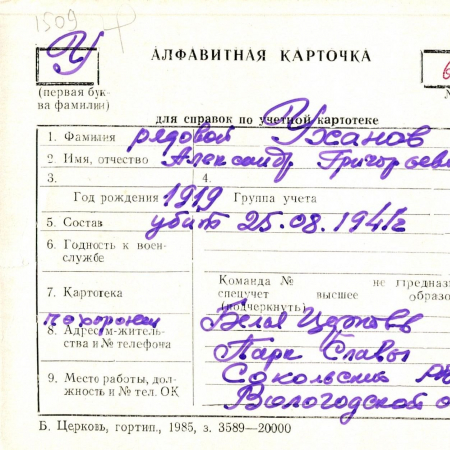 1509
У
АЛФАВИТНАЯ КАРТОЧКА
(первая бук-
ва фамилии)
для справок по учетной картотеке
1. Фамилия рядовой Ужанов
2. Имя, отчество Александр Григорьеви
3. 4.
Год рождения 1919 Группа учета
5. Состав убит 25.08.1941г
6. Годность к воен-
службе
Команда № не предназ
7. Картотека спецучет высшее образо
(подчеркнуть)
похоронен Белая Церковь
8. Адрес жительства и № телефона Парк Славы
9. Место работы, дол-
жность и № тел. ОК
Сокольский
Вологодской о
Б. Церковь, гортип., 1985, з. 3589—20000